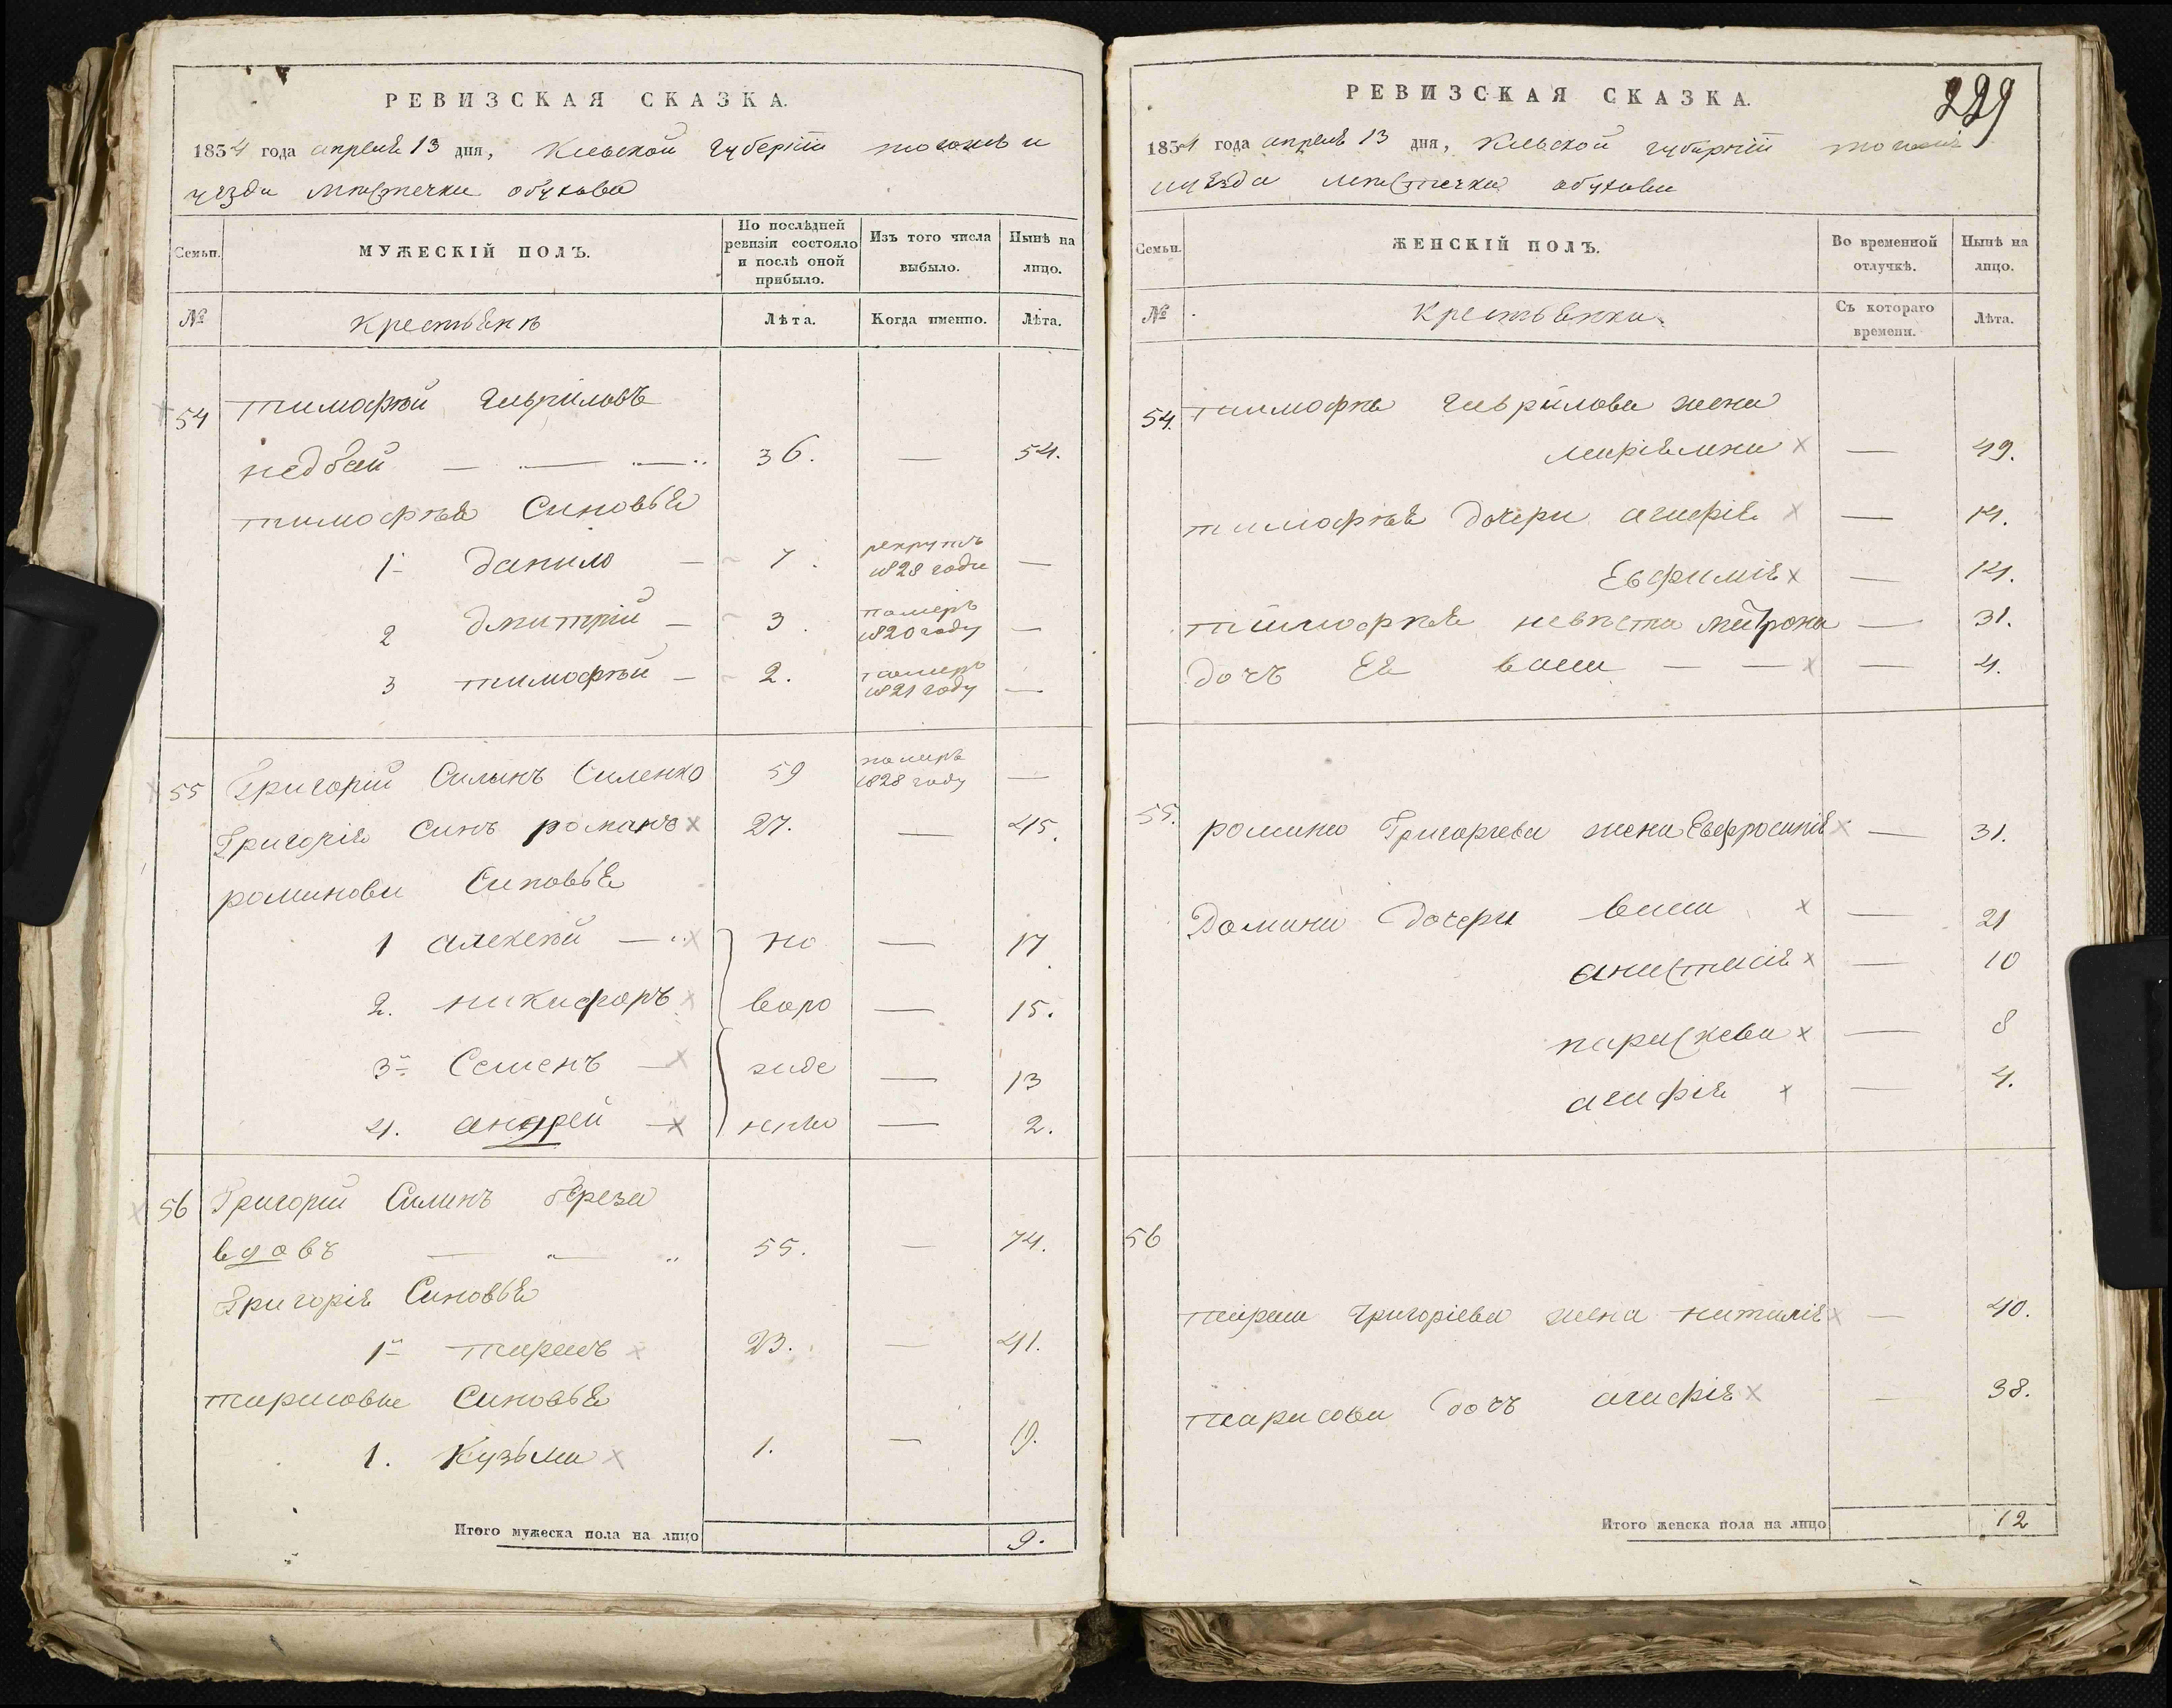 РЕВИЗСКАЯ СКАЗКА.
1834 года апреля 13 дня, Киевской губернiи тогожъ и
уезда местечка обухова
Семьи. МУЖЕСКIЙ ПОЛЪ. По послѣдней ревизiи состояло и послѣ оной прибыло. Изъ того числа выбыло. Нынѣ на лицо.
№ Крестьяне Лѣта. Когда именно. Лѣта.
54 тимофѣй гавриловъ
недбай — — — 36. — 54.
тимофѣя Синовья
1 данило — 7. рекрутъ 1828 года —
2 дмитрiй — 3. померъ 1820 году —
3 тимофѣй — 2. померъ 1821 году —
55 Григорiй Силинъ Силенко 59 померъ 1828 году —
Григорiя Синъ романъ x 27. — 45.
романови Синовья
1 алексѣй — x но — 17
2. никифоръ x воро — 15.
3 Семенъ — x жде — 13
4. андрей — x нные — 2.
56 Григорiй Силинъ береза
вдовъ — — 55. — 74.
Григорiя Синовья
1 тарасъ x 23. — 41.
тарасовы Синовья
1. Кузьма x 1. — 19.
Итого мужеска пола на лицо 9.
229
РЕВИЗСКАЯ СКАЗКА.
1834 года апреля 13 дня, Киевской губернiи тогожъ
и уѣзда местечка обухова
Семьи. ЖЕНСКIЙ ПОЛЪ. Во временной отлучкѣ. Нынѣ на лицо.
№ Крестьянки. Съ котораго времени. Лѣта.
54. тимофея гаврилова жена
марiямна x — 49.
тимофѣя дочери агафiя x — 14.
Евфимiя x — 14.
тимофѣя невѣста матрона — 31.
дочъ Ея васса — — x — 4.
55. романа Григорiева жена Евфросинiя x — 31.
Романа дочери васса x — 21
анастасiя x — 10
параскева x — 8
агафiя x — 4.
56
тараса григорiева жена наталiя x — 40.
тарасова дочъ агафiя x — 38.
Итого женска пола на лицо 12